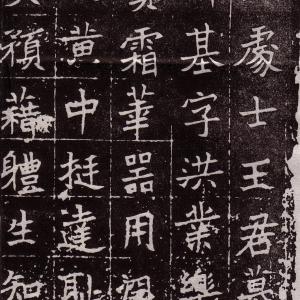 處士王君墓
基字洪業
霜華器用
黃中挺達
藉體生知